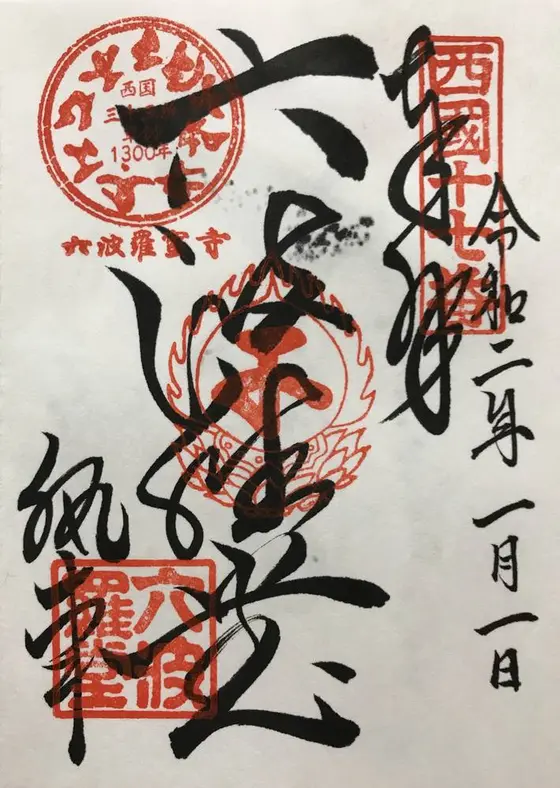 奉拝
西國十七番
令和二年一月一日
西国
三十三所
草創
1300年
六波羅蜜寺
執事
六波
羅堂